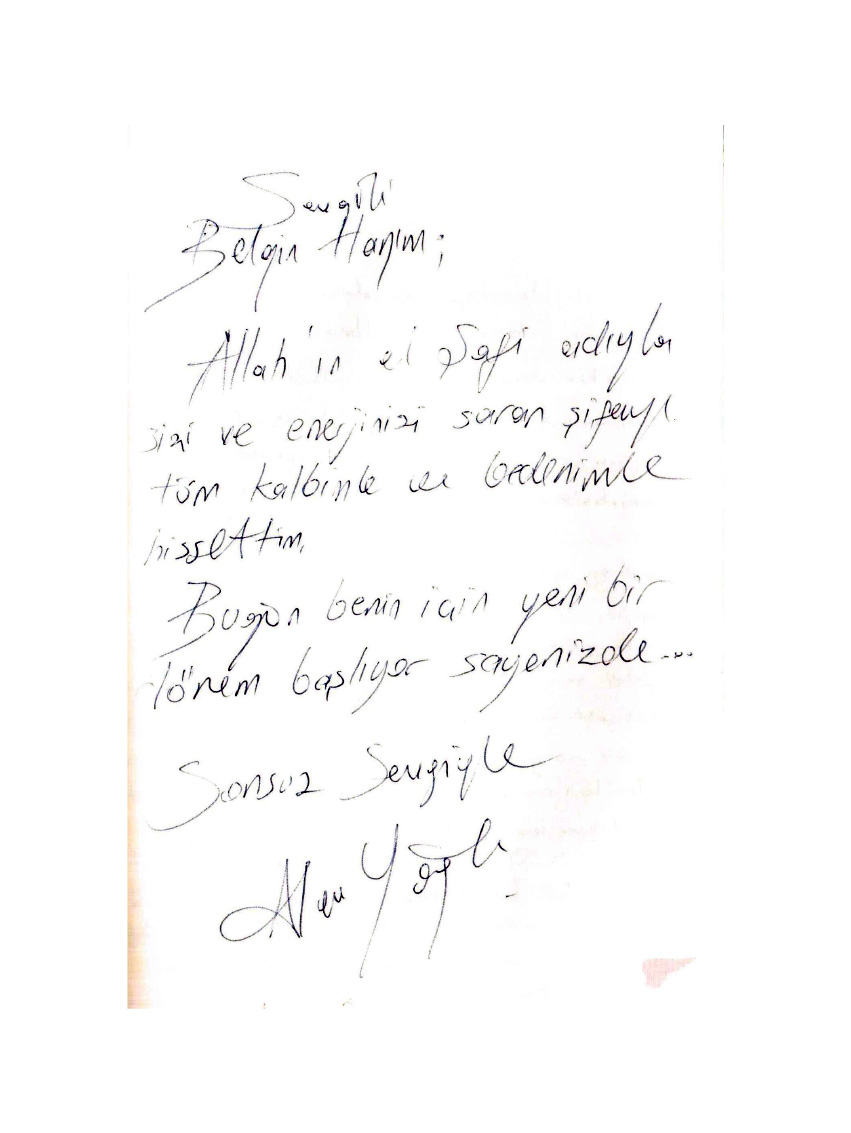 Sevgili
Belgin Hanım;
Allah'ın el Şafi adıyla
sizi ve enerjinizi saran şifayı
tüm kalbimle ve bedenimle
hissettim.
Bugün benim için yeni bir
dönem başlıyor sayenizde...
Sonsuz Sevgiyle